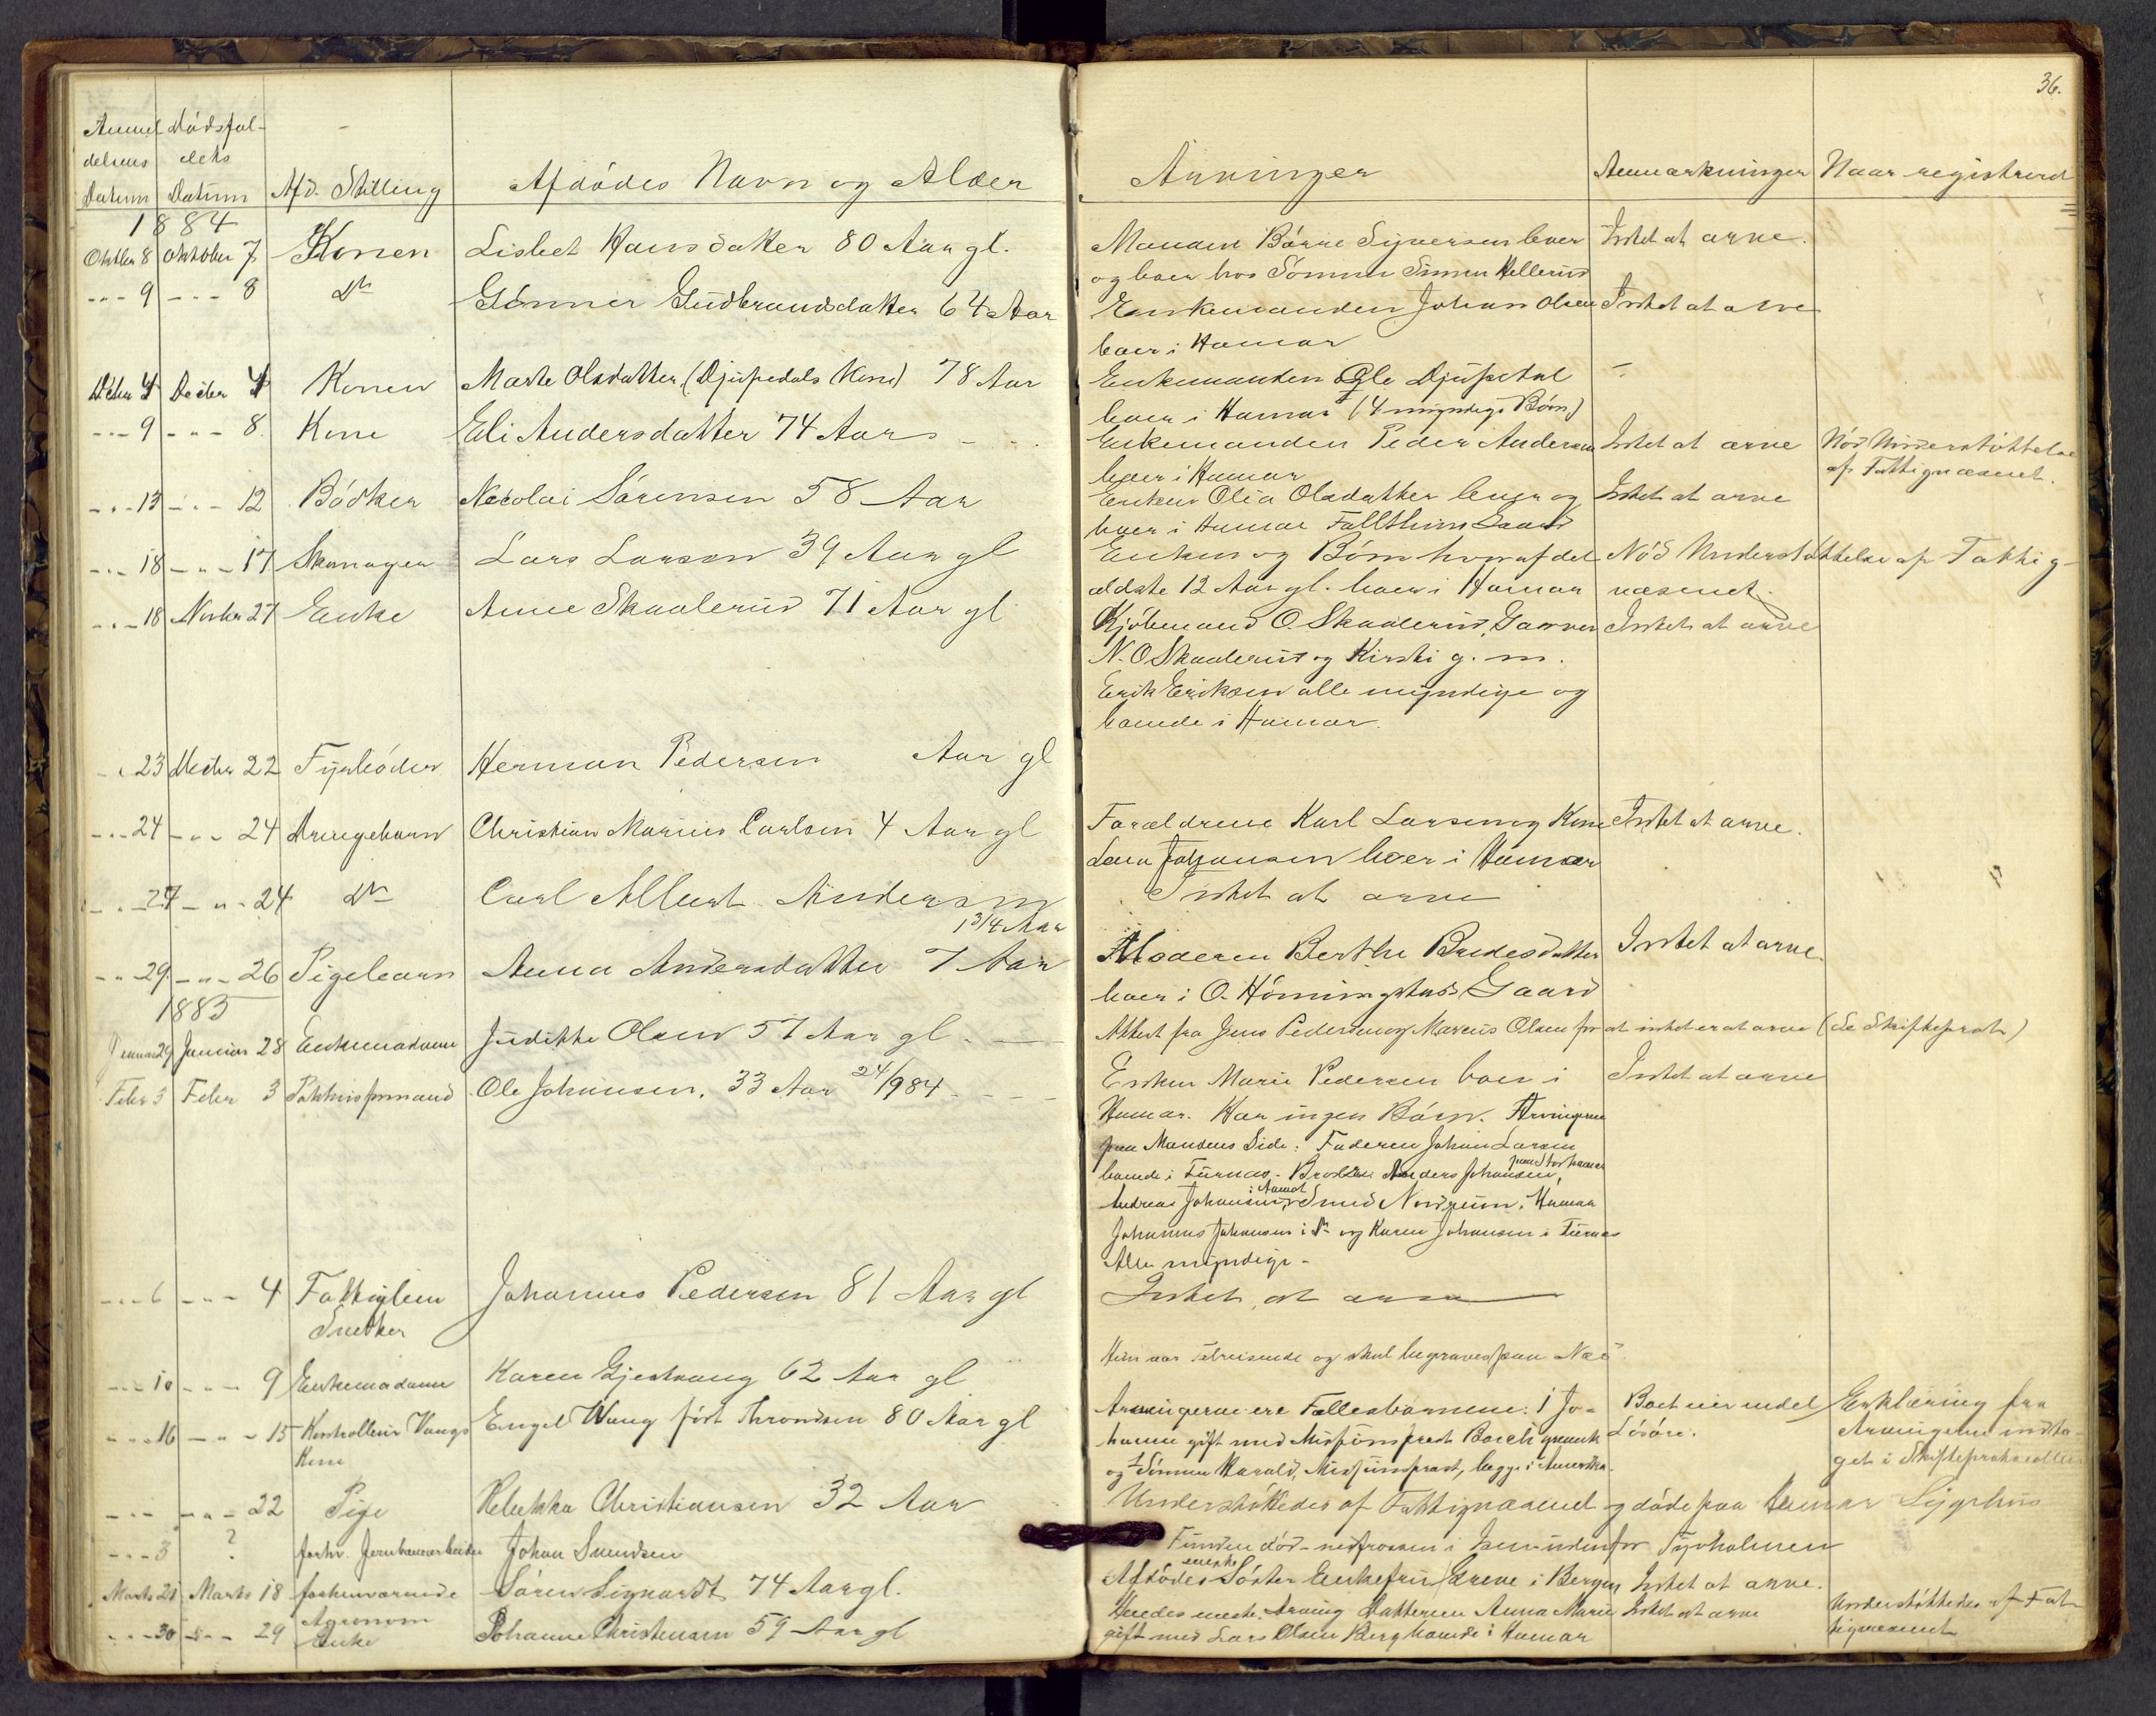 36.
Anmel- Dødsfal-
delsens dets
Datum Datum Afd. Stilling Afdødes Navn og Alder Arvinger Anmærkninger Naar registreret
1884
Oktbr 8 Oktober 7 Konen Lisbet Hansdatter 80 Aar gl. Manden Børre Syversen lever Intet at arve.
og boer hos Sønnen Simen Hellerud
--- 9 --- 8 Do Gunner Gudbrandsdatter 64 Aar Enkemanden Johan Olsen Intet at arve
boer i Hamar
Decbr 4 Decbr 4 Konen Marte Olsdatter (Djupedals Kone) 78 Aar Enkemanden Ole Djupedal -
boer i Hamar (4 myndige Børn)
--- 9 --- 8. Kone Eli Andersdatter 74 Aar Enkemanden Peder Andersen Intet at arve Nød Understøttelse
boer i Hamar af Fattigvæsenet.
--- 13 --- 12 Bødker Nicolai Sørensen 58 Aar Enken Olia Olsdatter lever og Intet at arve
boer i Hamar Gaard
--- 18 --- 17 Skomager Lars Larsen 39 Aar gl Enken og Børn hvoraf det Nød Understøttelse af Fattig-
ældste 12 Aar gl. boer i Hamar væsenet.
--- 18 Novbr 27 Enke Anne Skaalerud 71 Aar gl Kjøbmand O. Skaalerud, Garver Intet at arve
N. O Skaalerud og Kirsti g. m.
Erik Eriksen alle myndige og
boende i Hamar.
--- 23 Decbr 22 Fyrbøder Herman Pedersen Aar gl
--- 24 --- 24 Drengebarn Christian Marius Carlsen 4 Aar gl Forældrene Karl Larsen og Kone Intet at arve.
Lena Johansen boer i Hamar
--- 27 --- 24 Do Carl Albert Andersen Intet at arve
1 3/4 Aar
--- 29 --- 26 Pigebarn Anna Andersdatter 7 Aar Moderen Berthe Bredesdatter Intet at arve.
boer i O. Hønningstads Gaard
1885
Januar 29 Januar 28 Enkemadame Judithe Olsen 57 Aar gl. Attest fra Jens Pedersen og Marius Olsen for at intet er at arve (Se Skifteprot.)
Febr 3 Febr 3 Pakhusformand Ole Johansen. 33 Aar 24/9 84 Enken Marie Pedersen boer i Intet at arve
Hamar. Har ingen Børn. Arvingerne
paa Mandens Side: Faderen Johan Larsen
boende i Furnæs. Brødre Anders Johansen, paa Storhamar
Andreas Johansen i Aamot, Smed Nordgren i Hamar
Johannes Johansen i Do og Karen Johansen i Furnæs
Alle myndige -
--- 6 --- 4 Fattiglem Johannes Pedersen 81 Aar gl Intet at arve
Snedker
Hun var tilreisende og skal begraves paa Næs
--- 10 --- 9 Enkemadame Karen Gjestvang 62 Aar gl
--- 16 --- 15 Kontrollør Vangs Engel Wang født Throndsen 80 Aar gl Arvingerne ere Fællesbørnene: 1 Jo- Boet eier endel Erklæring fra
Kone hanne gift med Missionsprest Borchgrevink Løsøre. Arvingerne indta-
og 1 Sønnen Harald, Missionsprest, begge i get i Skifteprotokollen
--- --- 22 Pige Rebekka Christiansen 32 Aar Understøttedes af Fattigvæsenet og døde paa Hamar Sygehus
--- 3 ? forhv. Jernbanearbeider Johan Svendsen Funden død - nedfrossen i Isen udenfor Tyvholmen
Marts 21 Marts 18 forhenværende Søren Signardt 74 Aar gl. Afdødes eneste Søster Enkefru Greve i Bergen Intet at arve.
Agronom
--- 30 --- 29 Enke Johanne Christensen 59 Aar gl Hendes eneste Arving Datteren Anna Marie Intet at arve Understøttedes af Fat-
gift med Lars Olsen Berg boende i Hamar tigvæsenet